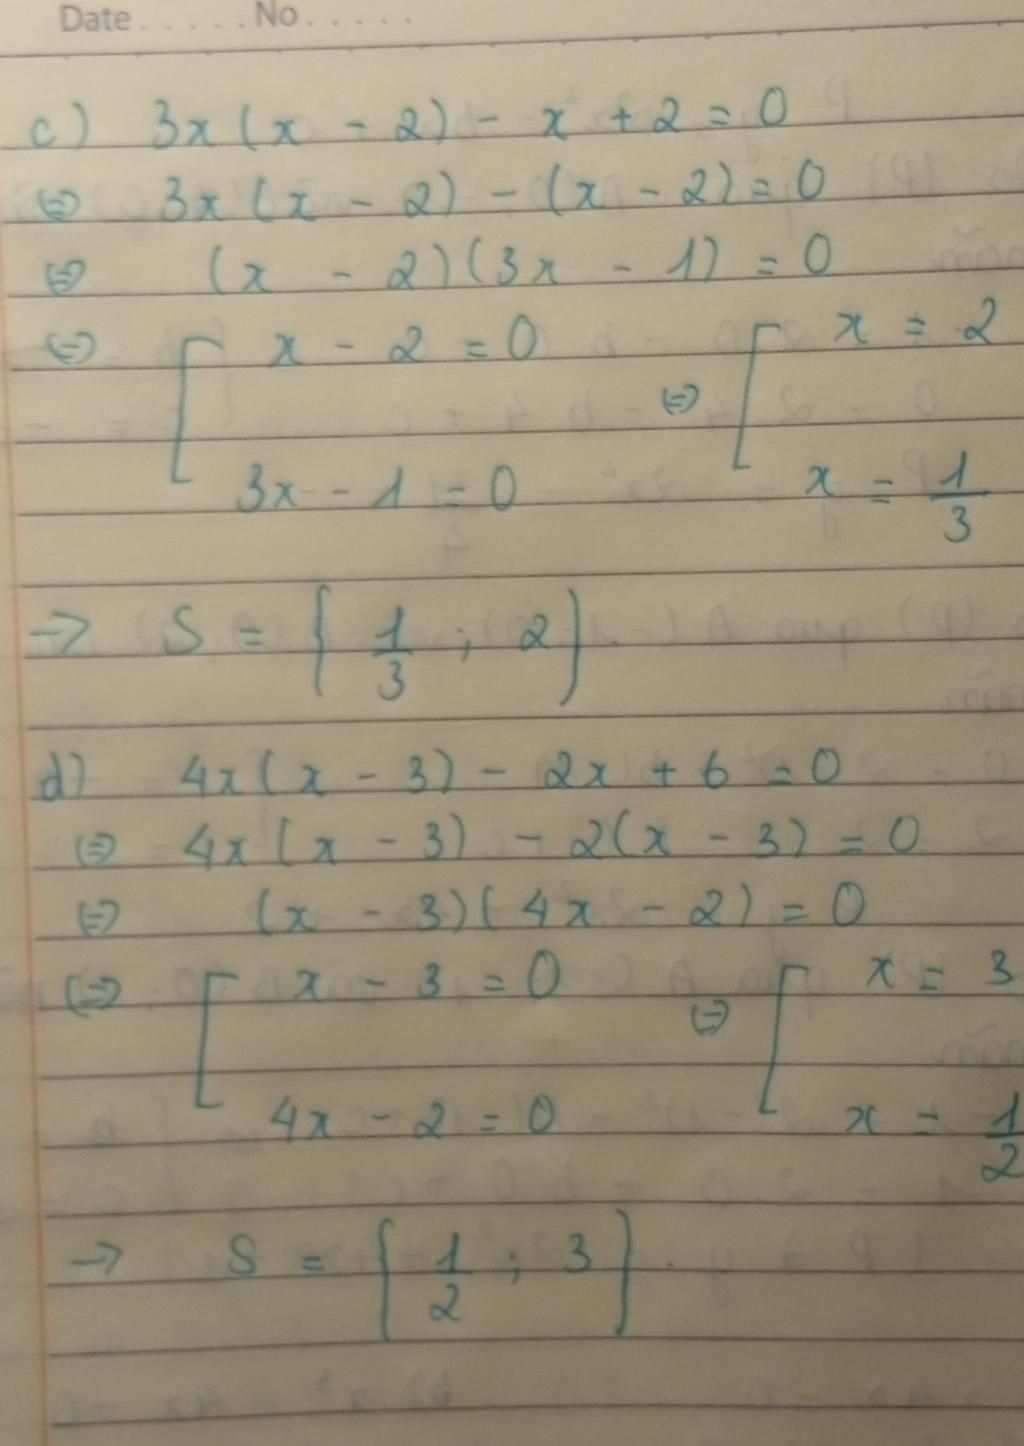 Date.....No.....
c) 3x(x - 2) - x + 2 = 0
⇔ 3x(x - 2) - (x - 2) = 0
⇔ (x - 2)(3x - 1) = 0
⇔ [ x - 2 = 0 ⇔ [ x = 2
3x - 1 = 0 x = 1/3
→ S = { 1/3 ; 2 }.
d) 4x(x - 3) - 2x + 6 = 0
⇔ 4x(x - 3) - 2(x - 3) = 0
⇔ (x - 3)(4x - 2) = 0
⇔ [ x - 3 = 0 ⇔ [ x = 3
4x - 2 = 0 x = 1/2
→ S = { 1/2 ; 3 }.